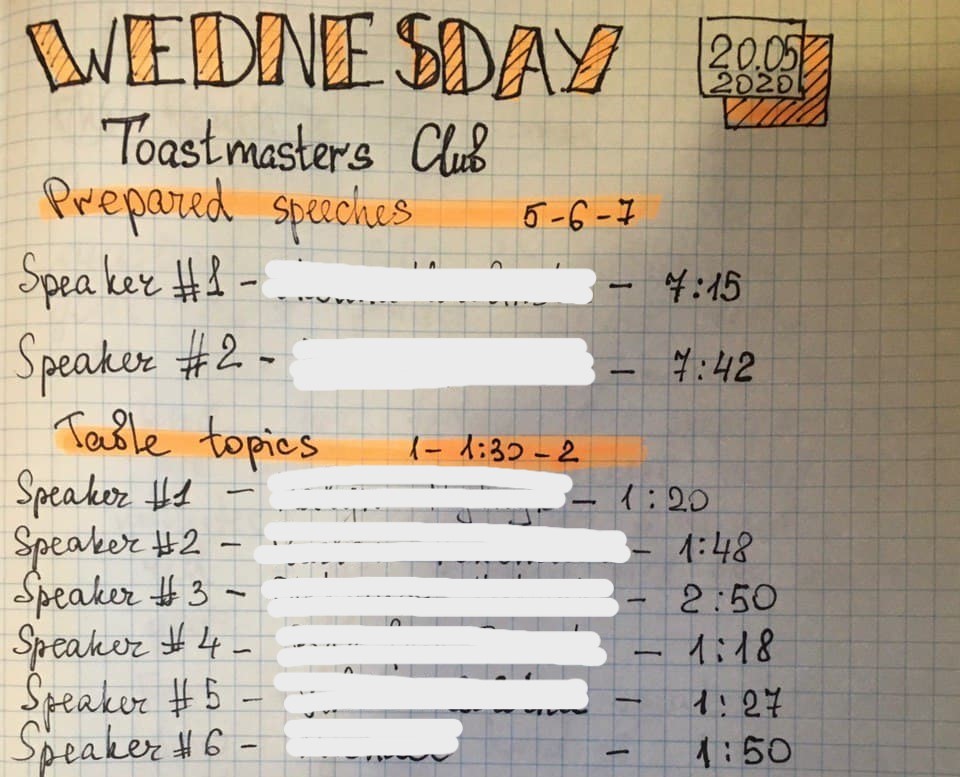 WEDNESDAY 20.05 2020
Toastmasters Club
Prepared speeches 5-6-7
Speaker #1 - - 7:15
Speaker #2 - - 7:42
Table topics 1 - 1:30 - 2
Speaker #1 - - 1:20
Speaker #2 - - 1:48
Speaker #3 - - 2:50
Speaker #4 - - 1:18
Speaker #5 - - 1:27
Speaker #6 - - 1:50